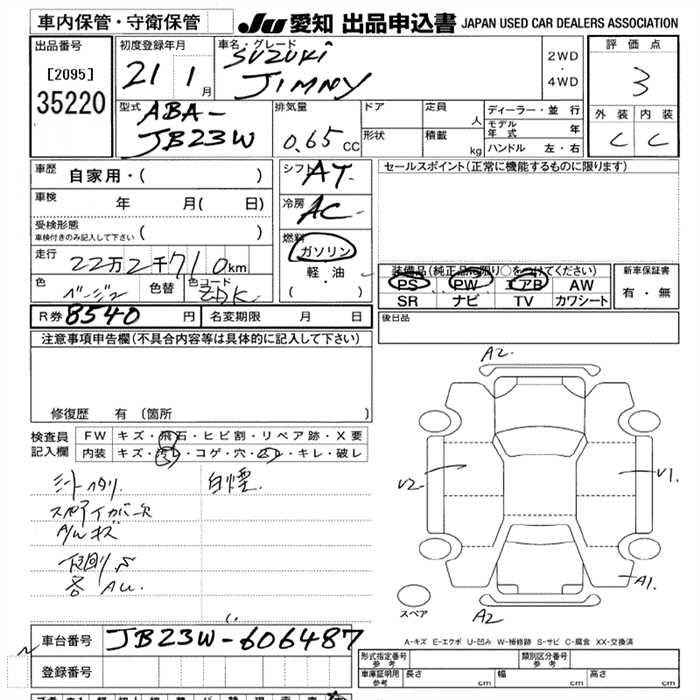 車内保管・守衛保管
JU 愛知 出品申込書 JAPAN USED CAR DEALERS ASSOCIATION
出品番号
[2095]
35220
初度登録年月
21 1月
車名・グレード
SUZUKI
JIMNY
2WD
・
4WD
評価点
3
外装 内装
C C
型式
ABA-
JB23W
排気量
0.65 cc
ドア
定員 人
形状
積載 kg
ディーラー・並行
モデル年式 年
ハンドル 左・右
車歴
自家用・( )
車検
年 月( 日)
受検形態
車検付きのみ記入して下さい ( )
走行
22万2千710km
色
ベージュ
色替
色コード
ZBK
シフト
AT
冷房
AC
燃料
ガソリン
軽・油
( )
セールスポイント(正常に機能するものに限ります)
装備品(純正品に限り○をつけてください)
PS PW エアB AW
SR ナビ TV カワシート
新車保証書
有・無
後日品
R券 8540 円
名変期限 月 日
注意事項申告欄(不具合内容等は具体的に記入して下さい)
修復歴 有 (箇所 )
検査員
記入欄
FW キズ・飛石・ヒビ割・リペア跡・X要
内装 キズ・汚レ・コゲ・穴・スレ・キレ・破レ
シートヘタリ
白煙
スペアタイヤカバー欠
A/Wキズ
下回りS
各AU.
A2.
U2-
U1.
A1.
A2
スペア
A-キズ E-エクボ U-凹み W-補修跡 S-サビ C-腐食 XX-交換済
車台番号
JB23W-606487
登録番号
形式指定番号
参考
類別区分番号
参考
車庫証明用
参考
長さ cm
幅 cm
高さ cm